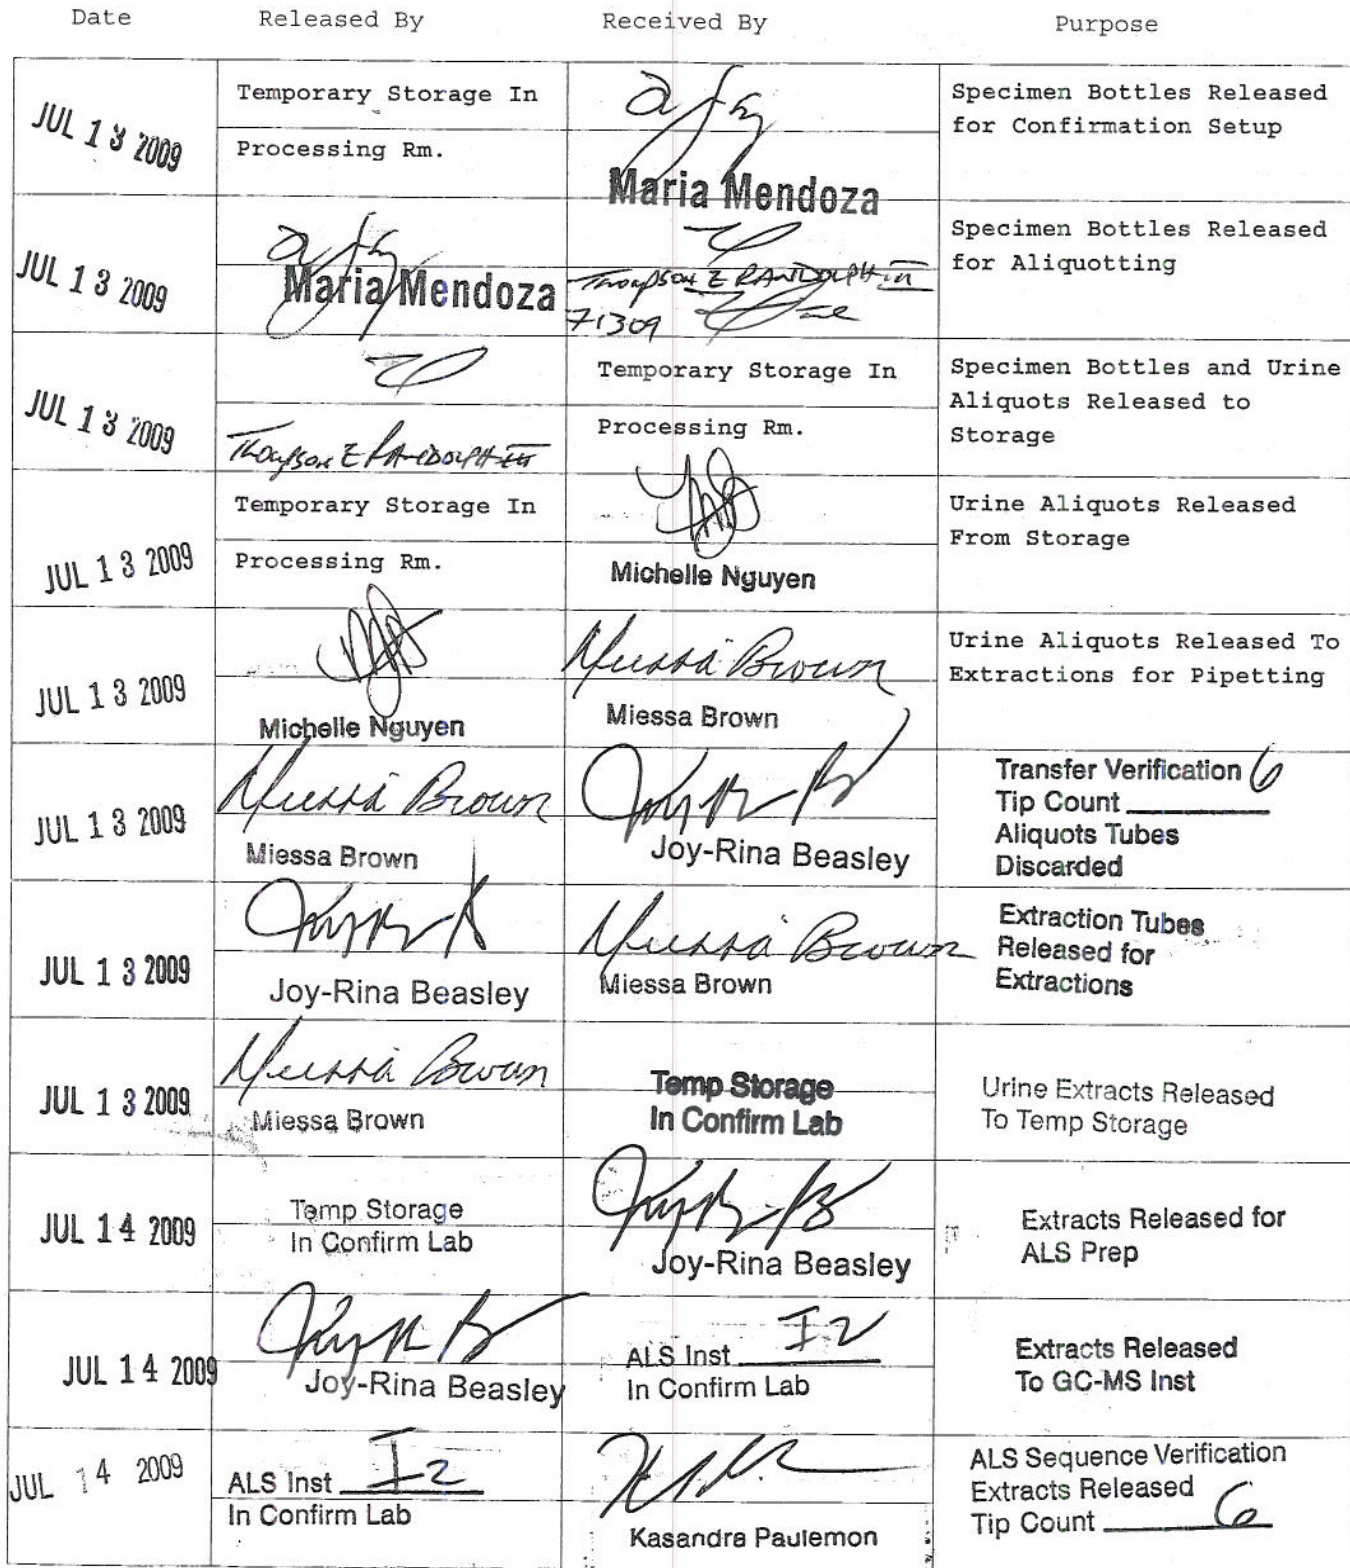 Date Released By Received By Purpose
JUL 13 2009
Temporary Storage In
Processing Rm.
Maria Mendoza
Specimen Bottles Released
for Confirmation Setup
JUL 13 2009
Maria Mendoza
Thompson E RANDOLPH III
71309
Specimen Bottles Released
for Aliquotting
JUL 13 2009
Thompson E RANDOLPH III
Temporary Storage In
Processing Rm.
Specimen Bottles and Urine
Aliquots Released to
Storage
JUL 13 2009
Temporary Storage In
Processing Rm.
Michelle Nguyen
Urine Aliquots Released
From Storage
JUL 13 2009
Michelle Nguyen
Miessa Brown
Miessa Brown
Urine Aliquots Released To
Extractions for Pipetting
JUL 13 2009
Miessa Brown
Miessa Brown
Joy-Rina Beasley
Transfer Verification 6
Tip Count
Aliquots Tubes
Discarded
JUL 13 2009
Joy-Rina Beasley
Miessa Brown
Miessa Brown
Extraction Tubes
Released for
Extractions
JUL 13 2009
Miessa Brown
Miessa Brown
Temp Storage
In Confirm Lab
Urine Extracts Released
To Temp Storage
JUL 14 2009
Temp Storage
In Confirm Lab
Joy-Rina Beasley
Extracts Released for
ALS Prep
JUL 14 2009
Joy-Rina Beasley
ALS Inst I2
In Confirm Lab
Extracts Released
To GC-MS Inst
JUL 14 2009
ALS Inst I2
In Confirm Lab
Kasandra Paulemon
ALS Sequence Verification
Extracts Released
Tip Count 6